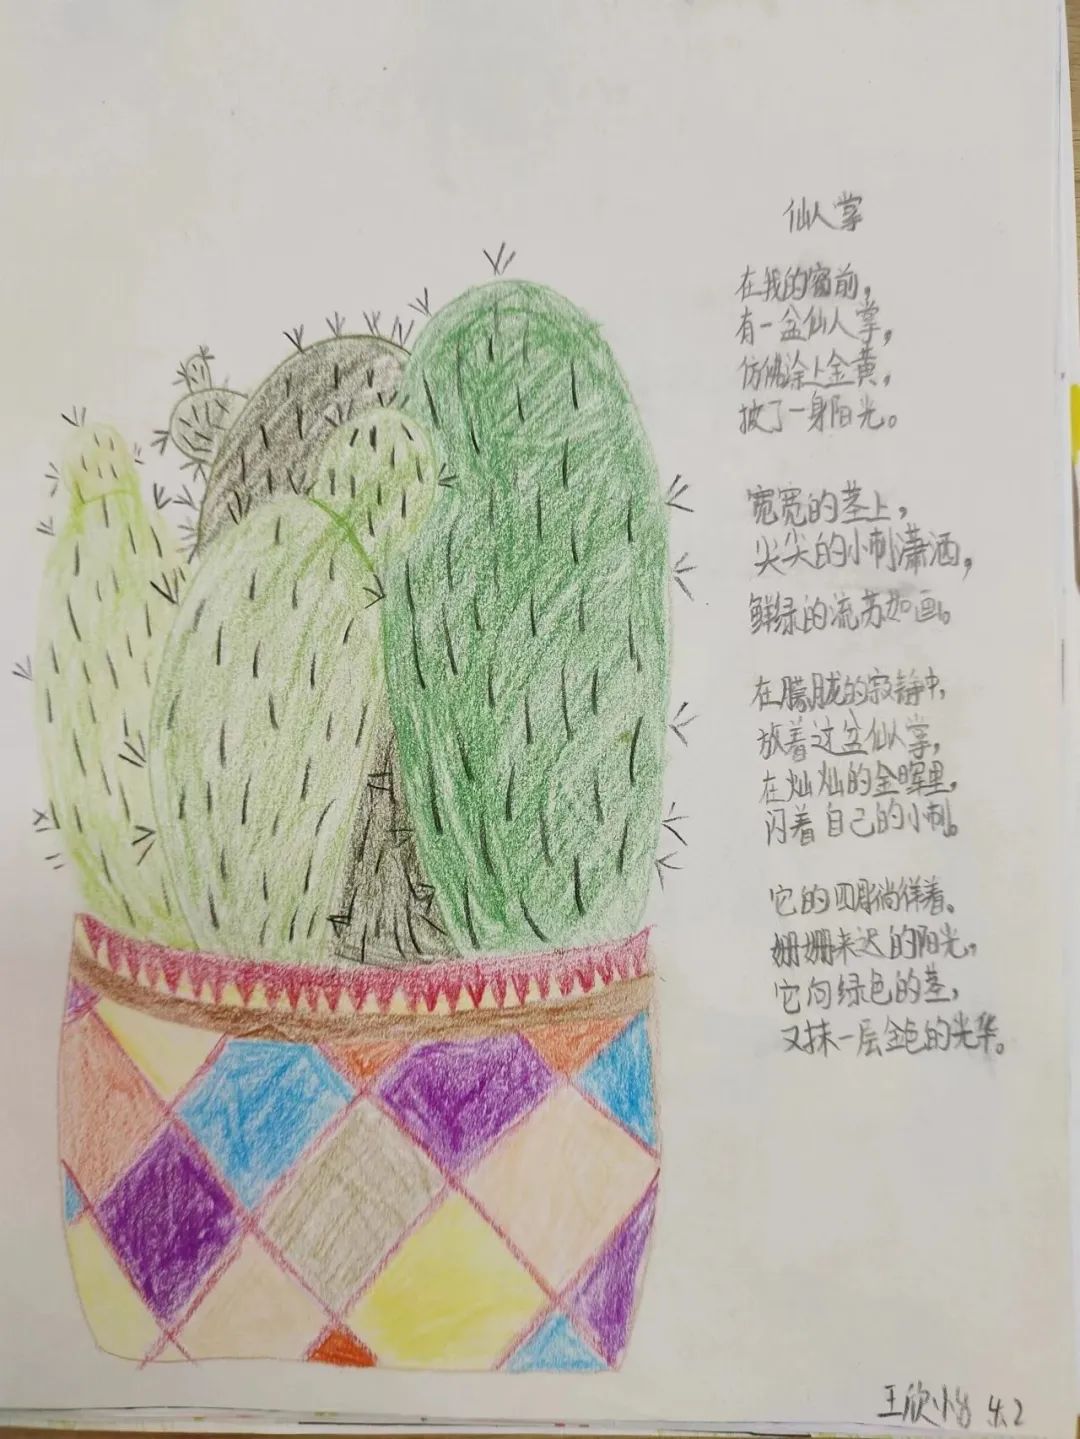 仙人掌
在我的窗前，
有一盆仙人掌，
仿佛涂上金黄，
披了一身阳光。
宽宽的茎上，
尖尖的小刺潇洒，
鲜绿的流苏如画。
在朦胧的寂静中，
放着这盆仙人掌，
在灿灿的金晖里，
闪着自己的小刺。
它的四周徜徉着。
姗姗来迟的阳光，
它向绿色的茎，
又抹一层金色的光华。
王欣 4.2